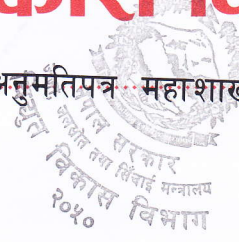 अनुमतिपत्र महाशाख
नेपाल सरकार
तथा सिंचाई मन्त्रालय
विद्युत विकास विभाग
२०५०